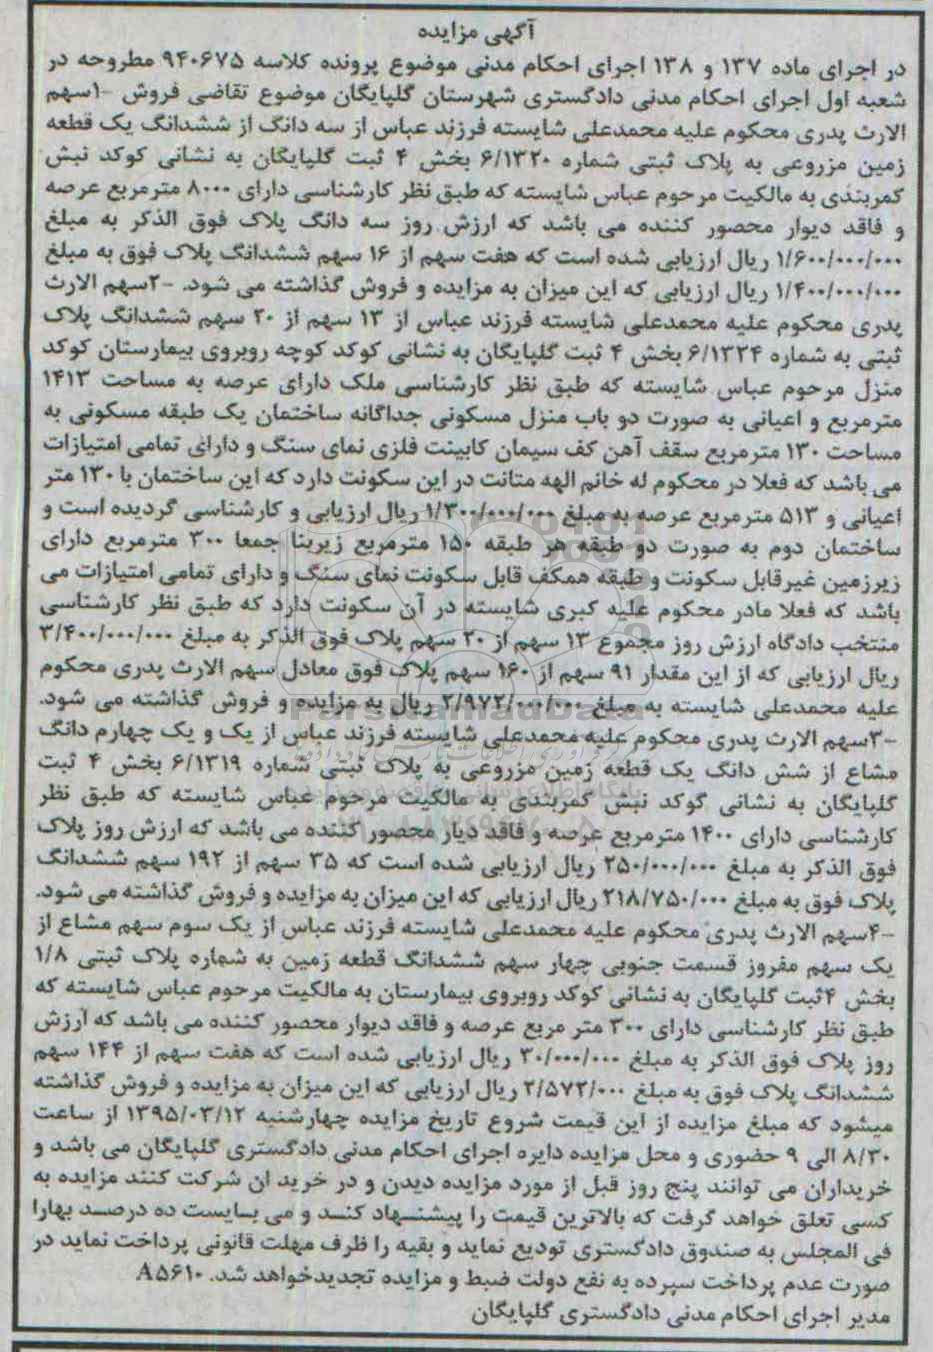 آگهی مزایده
در اجرای ماده ۱۳۷ و ۱۳۸ اجرای احکام مدنی موضوع پرونده کلاسه ۹۴۰۶۷۵ مطروحه در
شعبه اول اجرای احکام مدنی دادگستری شهرستان گلپایگان موضوع تقاضی فروش -۱سهم
الارث پدری محکوم علیه محمدعلی شایسته فرزند عباس از سه دانگ از ششدانگ یک قطعه
زمین مزروعی به پلاک ثبتی شماره ۶/۱۳۲۰ بخش ۴ ثبت گلپایگان به نشانی کوکد نبش
کمربندی به مالکیت مرحوم عباس شایسته که طبق نظر کارشناسی دارای ۸۰۰۰ مترمربع عرصه
و فاقد دیوار محصور کننده می باشد که ارزش روز سه دانگ پلاک فوق الذکر به مبلغ
۱/۶۰۰/۰۰۰/۰۰۰ ریال ارزیابی شده است که هفت سهم از ۱۶ سهم ششدانگ پلاک فوق به مبلغ
۱/۴۰۰/۰۰۰/۰۰۰ ریال ارزیابی که این میزان به مزایده و فروش گذاشته می شود. -۲سهم الارث
پدری محکوم علیه محمدعلی شایسته فرزند عباس از ۱۳ سهم از ۲۰ سهم ششدانگ پلاک
ثبتی به شماره ۶/۱۳۲۴ بخش ۴ ثبت گلپایگان به نشانی کوکد کوچه روبروی بیمارستان کوکد
منزل مرحوم عباس شایسته که طبق نظر کارشناسی ملک دارای عرصه به مساحت ۱۴۱۳
مترمربع و اعیانی به صورت دو باب منزل مسکونی جداگانه ساختمان یک طبقه مسکونی به
مساحت ۱۳۰ مترمربع سقف آهن کف سیمان کابینت فلزی نمای سنگ و دارای تمامی امتیازات
می باشد که فعلا در محکوم له خانم الهه متانت در این سکونت دارد که این ساختمان با ۱۳۰ متر
اعیانی و ۵۱۳ مترمربع عرصه به مبلغ ۱/۳۰۰/۰۰۰/۰۰۰ ریال ارزیابی و کارشناسی گردیده است و
ساختمان دوم به صورت دو طبقه هر طبقه ۱۵۰ مترمربع زیربنا جمعا ۳۰۰ مترمربع دارای
زیرزمین غیرقابل سکونت و طبقه همکف قابل سکونت نمای سنگ و دارای تمامی امتیازات می
باشد که فعلا مادر محکوم علیه کبری شایسته در آن سکونت دارد که طبق نظر کارشناسی
منتخب دادگاه ارزش روز مجموع ۱۳ سهم از ۲۰ سهم پلاک فوق الذکر به مبلغ ۳/۴۰۰/۰۰۰/۰۰۰
ریال ارزیابی که از این مقدار ۹۱ سهم از ۱۶۰ سهم پلاک فوق معادل سهم الارث پدری محکوم
علیه محمدعلی شایسته به مبلغ ۲/۹۷۲/۰۰۰/۰۰۰ ریال به مزایده و فروش گذاشته می شود.
-۳سهم الارث پدری محکوم علیه محمدعلی شایسته فرزند عباس از یک و یک چهارم دانگ
مشاع از شش دانگ یک قطعه زمین مزروعی به پلاک ثبتی شماره ۶/۱۳۱۹ بخش ۴ ثبت
گلپایگان به نشانی گوکد نبش کمربندی به مالکیت مرحوم عباس شایسته که طبق نظر
کارشناسی دارای ۱۴۰۰ مترمربع عرصه و فاقد دیار محصور کننده می باشد که ارزش روز پلاک
فوق الذکر به مبلغ ۲۵۰/۰۰۰/۰۰۰ ریال ارزیابی شده است که ۳۵ سهم از ۱۹۲ سهم ششدانگ
پلاک فوق به مبلغ ۲۱۸/۷۵۰/۰۰۰ ریال ارزیابی که این میزان به مزایده و فروش گذاشته می شود.
-۴سهم الارث پدری محکوم علیه محمدعلی شایسته فرزند عباس از یک سوم سهم مشاع از
یک سهم مفروز قسمت جنوبی چهار سهم ششدانگ قطعه زمین به شماره پلاک ثبتی ۱/۸
بخش ۴ثبت گلپایگان به نشانی کوکد روبروی بیمارستان به مالکیت مرحوم عباس شایسته که
طبق نظر کارشناسی دارای ۳۰۰ متر مربع عرصه و فاقد دیوار محصور کننده می باشد که ارزش
روز پلاک فوق الذکر به مبلغ ۳۰/۰۰۰/۰۰۰ ریال ارزیابی شده است که هفت سهم از ۱۴۴ سهم
ششدانگ پلاک فوق به مبلغ ۲/۵۷۲/۰۰۰ ریال ارزیابی که این میزان به مزایده و فروش گذاشته
میشود که مبلغ مزایده از این قیمت شروع تاریخ مزایده چهارشنبه ۱۳۹۵/۰۳/۱۲ از ساعت
۸/۳۰ الی ۹ حضوری و محل مزایده دایره اجرای احکام مدنی دادگستری گلپایگان می باشد و
خریداران می توانند پنج روز قبل از مورد مزایده دیدن و در خرید ان شرکت کنند مزایده به
کسی تعلق خواهد گرفت که بالاترین قیمت را پیشنهاد کند و می بایست ده درصد بهارا
فی المجلس به صندوق دادگستری تودیع نماید و بقیه را ظرف مهلت قانونی پرداخت نماید در
صورت عدم پرداخت سپرده به نفع دولت ضبط و مزایده تجدیدخواهد شد. A۵۶۱۰
مدیر اجرای احکام مدنی دادگستری گلپایگان
ParsNamadData